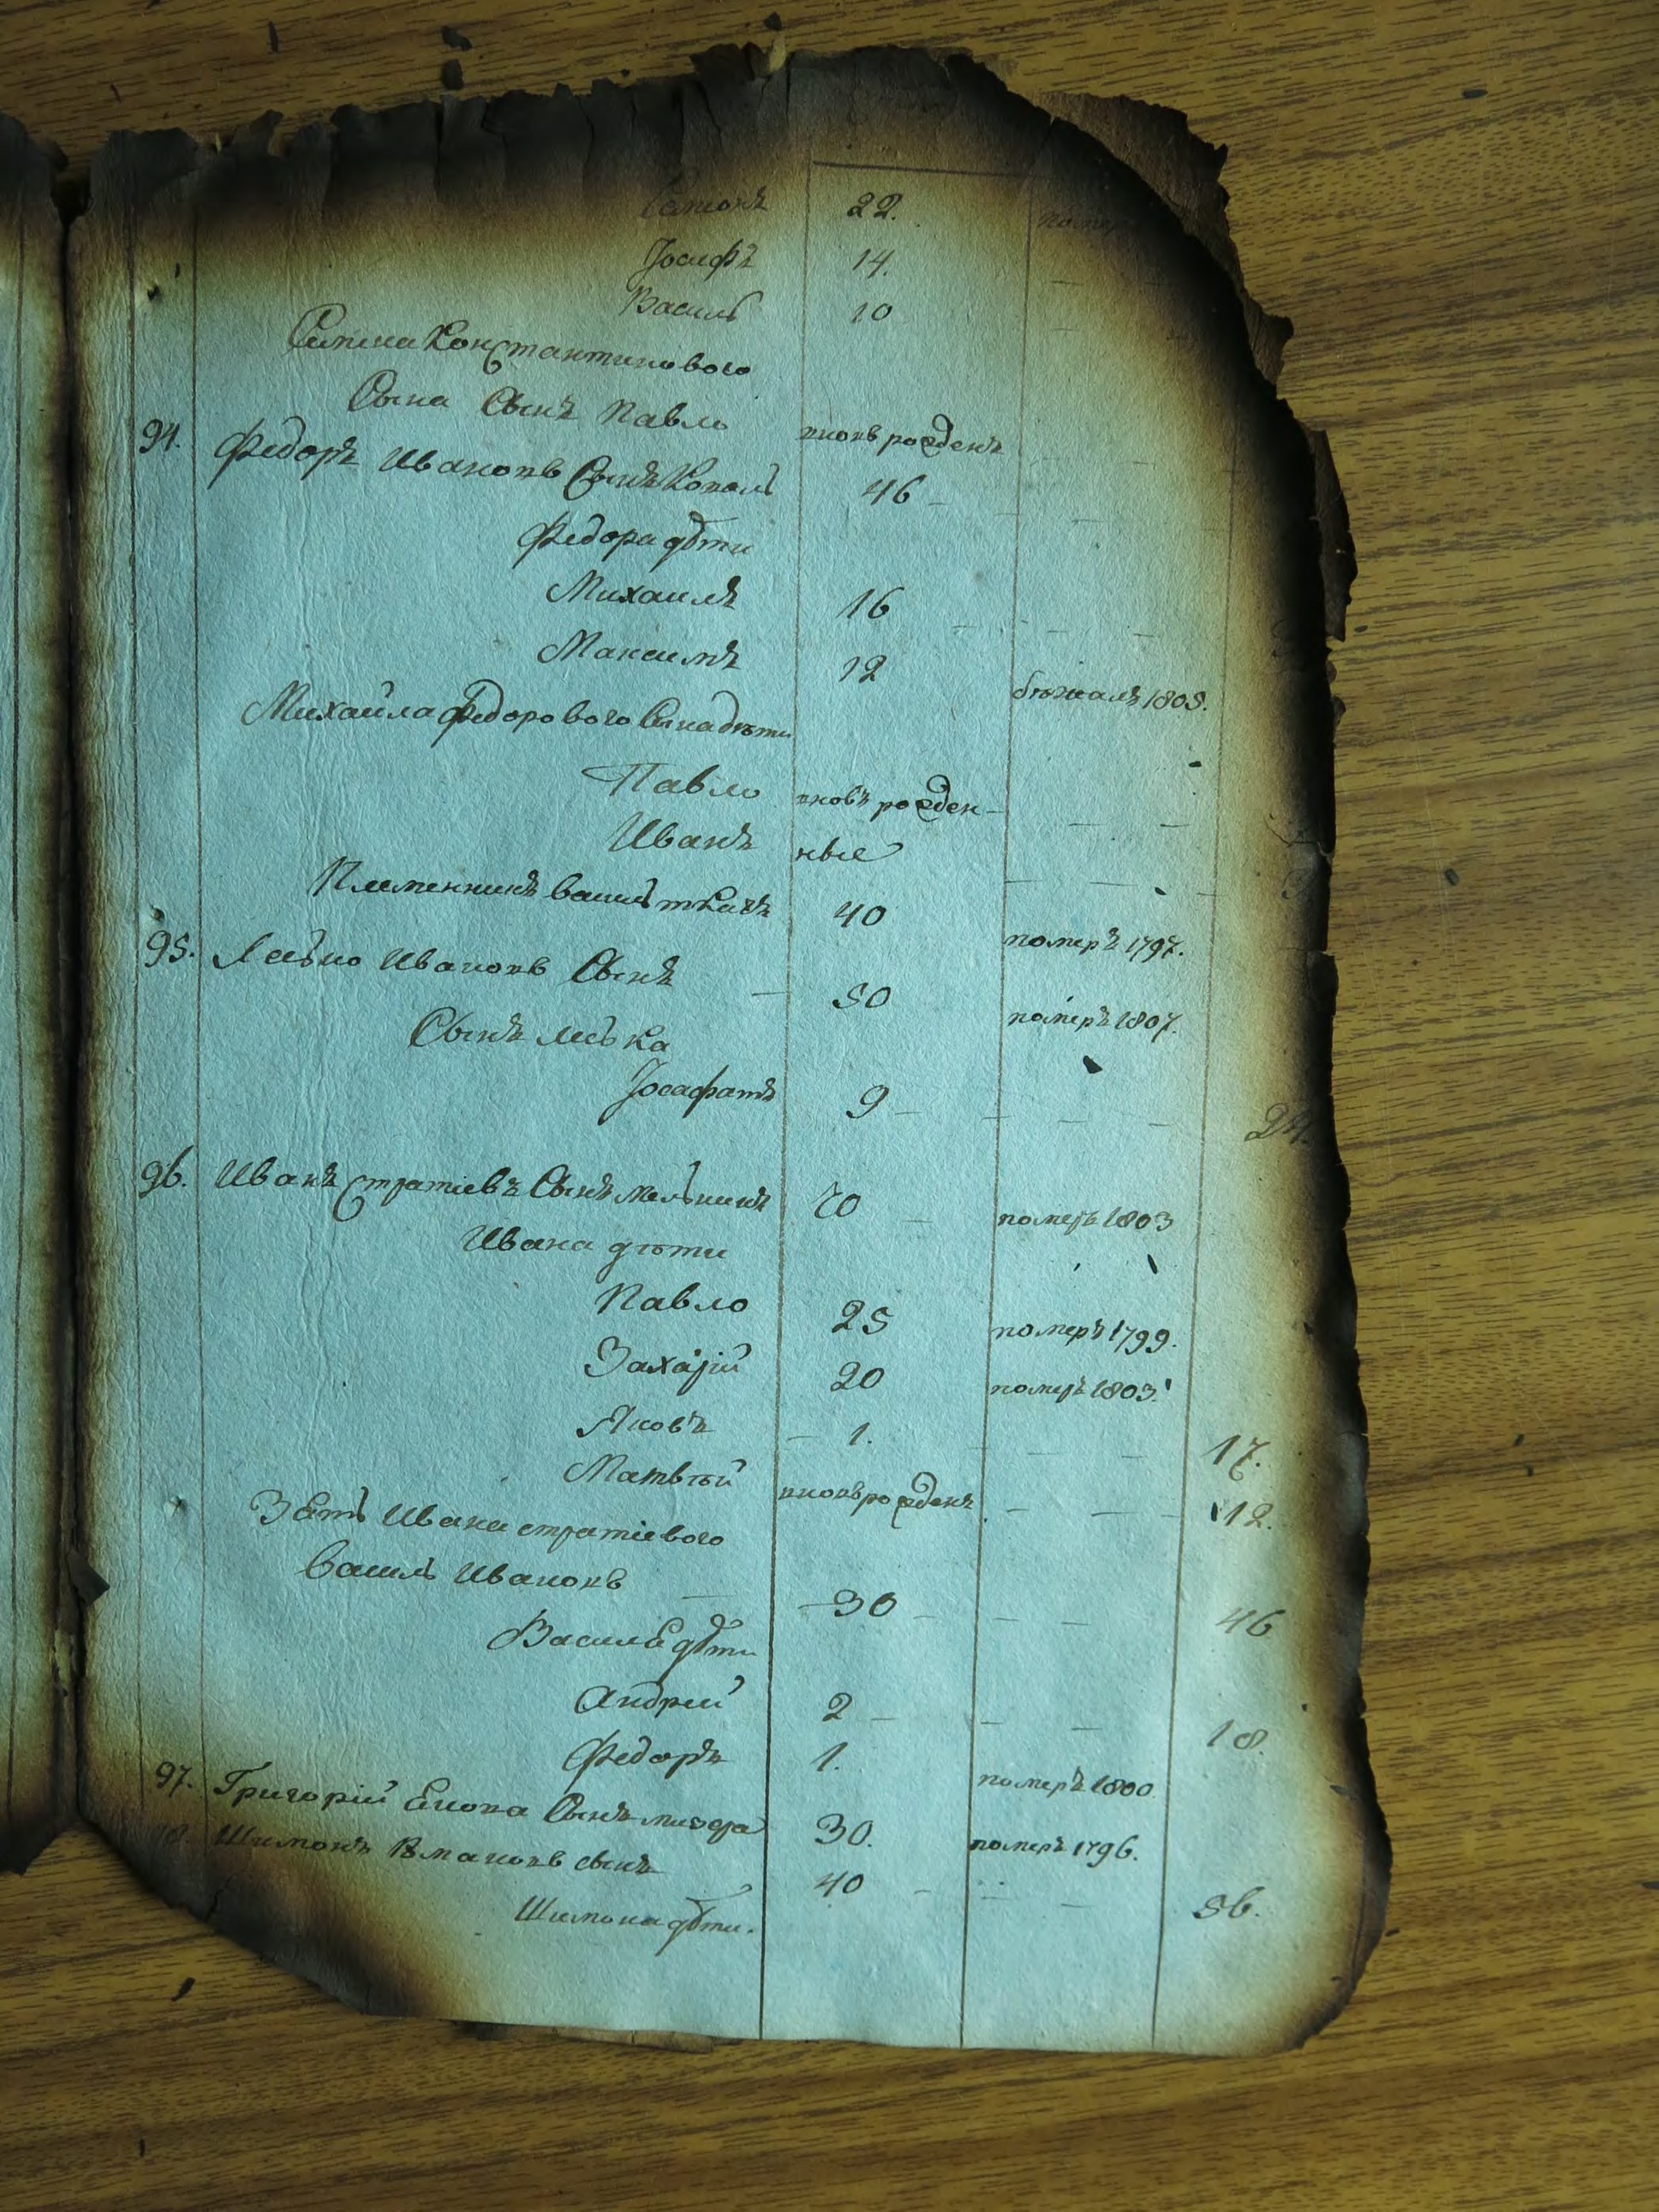 Семенъ 22. помер
Іосифъ 14.
Василь 10
Семена Константинового
Сына Сынъ Павло вновь рожденъ
94. Федоръ Ивановъ Сынъ Коваль 46
Федора дѣти
Михаилъ 16
Максимъ 12 бѣжалъ 1805.
Михайла Федорового Сына дѣти
Павло вновь рожден-
Иванъ ные
Племенникъ василь ткачъ 40 померъ 1797.
95. Лесько Ивановъ Сынъ 50 померъ 1807.
Сынъ леська
Іосафатъ 9 24.
96. Иванъ Стратіевъ Сынъ мельникъ 70 померъ 1803
Ивана дѣти
Павло 25 померъ 1799.
Захарій 20 померъ 1803.
Яковъ 1. 17.
Матвѣй вновь рожденъ 12.
Зять Ивана стратіевого
василь Ивановъ 30 46
Василя дѣти
Андрей 2 18.
Федоръ 1. померъ 1800
97. Григорій Сынъ 30. померъ 1796.
Шимонъ сынъ 40 56.
Шимона дѣти.